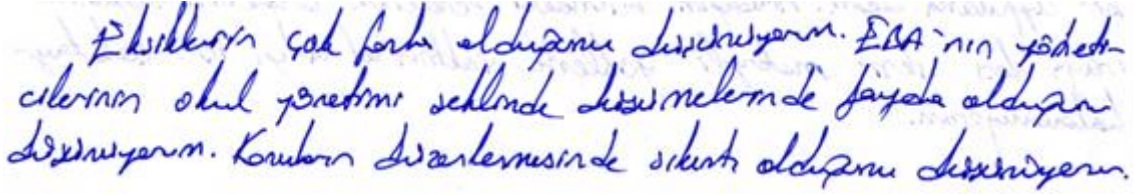 Eksiklerin çok fazla olduğunu düşünüyorum. EBA'nın yöneti-
cilerinin okul yönetimi şeklinde düşünmelerinde fayda olduğunu
düşünüyorum. Konuların düzenlenmesinde sıkıntı olduğunu düşünüyorum.